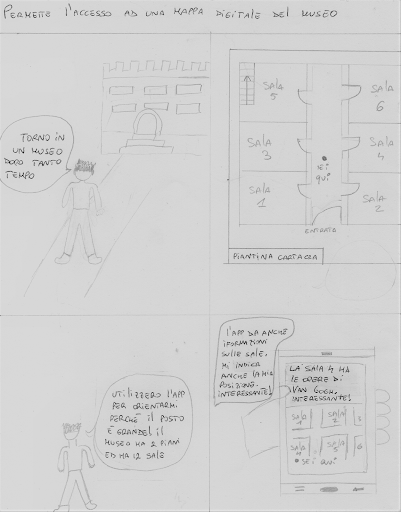 PERMETTO L'ACCESSO AD UNA MAPPA DIGITALE DEL MUSEO
TORNO IN
UN MUSEO
DOPO TANTO
TEMPO
SALA
5
SALA
6
SALA
3
SALA
4
SEI
QUI
SALA
1
SALA
2
ENTRATA
PIANTINA CARTACEA
UTILIZZERÒ L'APP
PER ORIENTARMI,
PERCHÉ IL POSTO
È GRANDE! IL
MUSEO HA 2 PIANI
ED HA 12 SALE
L'APP DA ANCHE
IFORMAZIONI
SULLE SALE,
MI INDICA
ANCHE LA MIA
POSIZIONE.
INTERESSANTE!
LA SALA 4 HA
LE OPERE DI
VAN GOGH,
INTERESSANTE!
SALA
SALA
SALA
SALA
SEI QUI